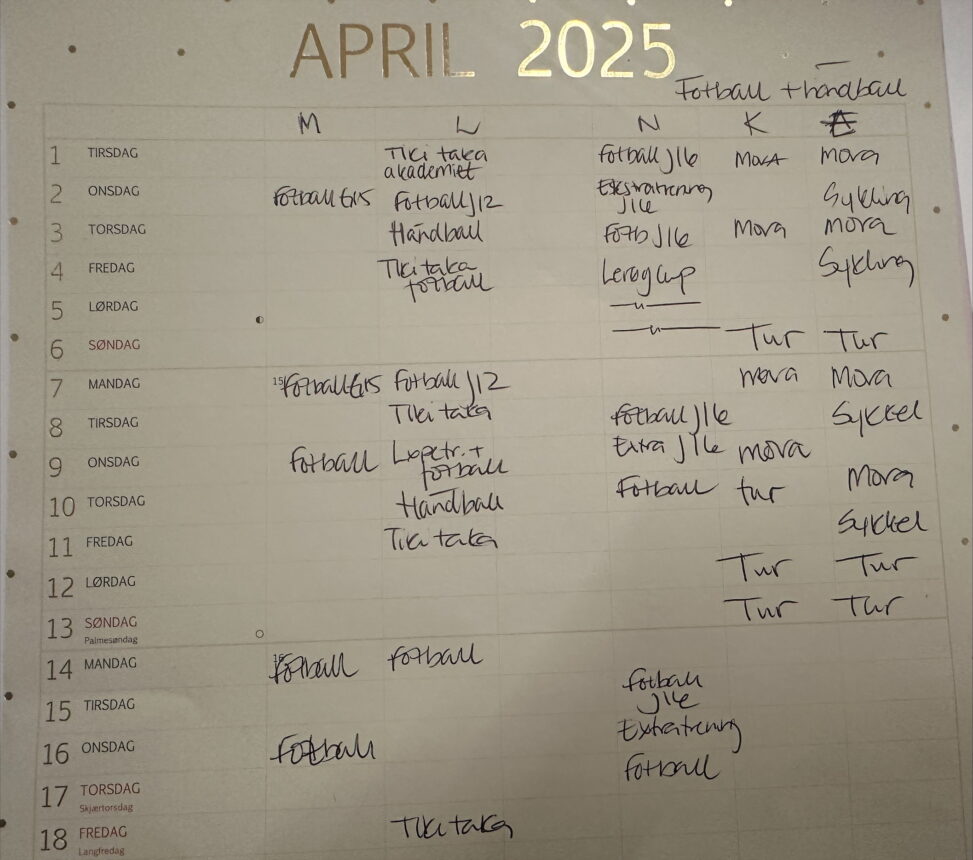 APRIL 2025
Fotball + håndball
M L N K
1 TIRSDAG Tiki taka akademiet Fotball J16 Mova Mova
2 ONSDAG Fotball G15 Fotball J12 Ekstratrening J16 Sykling
3 TORSDAG Håndball Fotb J16 Mova Mova
4 FREDAG Tiki taka fotball Lerøy cup Sykling
5 LØRDAG —〃—
6 SØNDAG —〃— Tur Tur
7 MANDAG 15 Fotball G15 Fotball J12 Mova Mova
8 TIRSDAG Tiki taka Fotball J16 Sykkel
9 ONSDAG Fotball Løpetr. + fotball Extra J16 Mova
10 TORSDAG Håndball Fotball tur Mova
11 FREDAG Tiki taka Sykkel
12 LØRDAG Tur Tur
13 SØNDAG Tur Tur
Palmesøndag
14 MANDAG 16 Fotball Fotball
15 TIRSDAG Fotball J16
16 ONSDAG Fotball Extratrening
17 TORSDAG Fotball
Skjærtorsdag
18 FREDAG Tiki taka
Langfredag